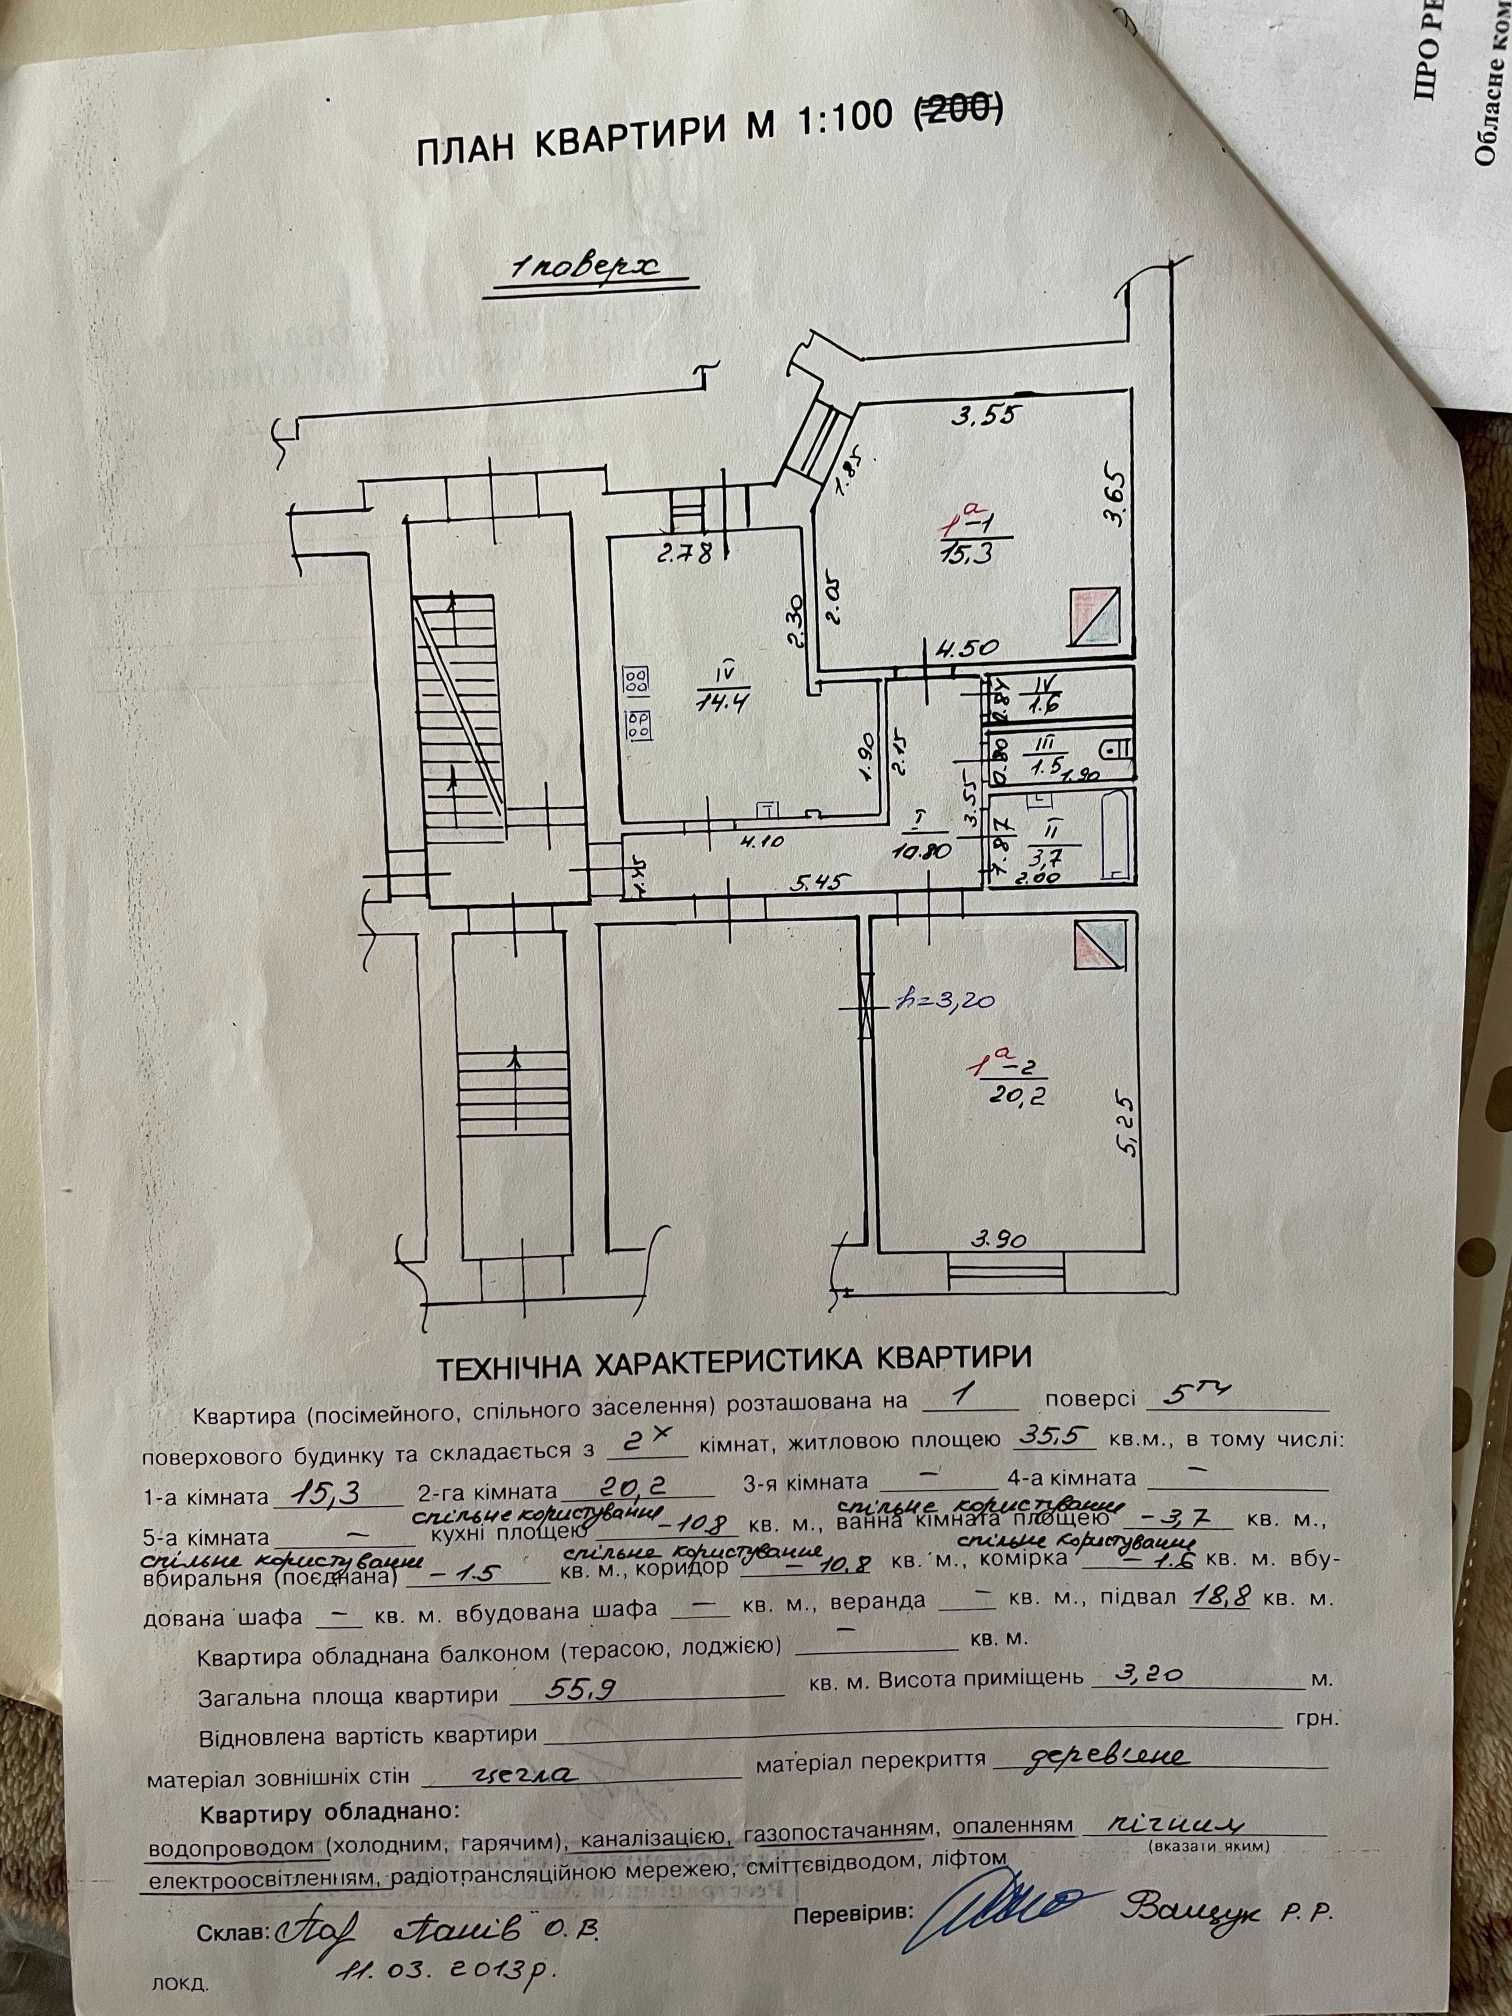 ПРО РЕ
Обласне ком
ПЛАН КВАРТИРИ М 1:100 (200)
1 поверх
3.55
1.85
3.65
1а-1
15,3
2.78
2.30
2.05
4.50
IV
14.4
0.84
IV
1.6
1.90
2.15
0.80
III
1.5
1.90
3.55
I
10.80
1.87
II
3,7
2.00
4.10
5.45
h=3,20
1а-2
20,2
5,25
3.90
ТЕХНІЧНА ХАРАКТЕРИСТИКА КВАРТИРИ
Квартира (посімейного, спільного заселення) розташована на 1 поверсі 5ти
поверхового будинку та складається з 2х кімнат, житловою площею 35,5 кв.м., в тому числі:
1-а кімната 15,3 2-га кімната 20,2 3-я кімната – 4-а кімната –
спільне користування спільне користування
5-а кімната – кухні площею -10,8 кв. м., ванна кімната площею -3,7 кв. м.,
спільне користування спільне користування спільне користування
вбиральня (поєднана) -1.5 кв. м., коридор -10,8 кв. м., комірка -1.6 кв. м. вбу-
дована шафа – кв. м. вбудована шафа – кв. м., веранда – кв. м., підвал 18,8 кв. м.
Квартира обладнана балконом (терасою, лоджією) – кв. м.
Загальна площа квартири 55,9 кв. м. Висота приміщень 3,20 м.
Відновлена вартість квартири грн.
матеріал зовнішніх стін цегла матеріал перекриття деревяне
Квартиру обладнано:
водопроводом (холодним, гарячим), каналізацією, газопостачанням, опаленням пічним
(вказати яким)
електроосвітленням, радіотрансляційною мережею, сміттєвідводом, ліфтом
Склав: Панів О.В. Перевірив: Ващук Р.Р.
11.03.2013р.
ЛОКД.